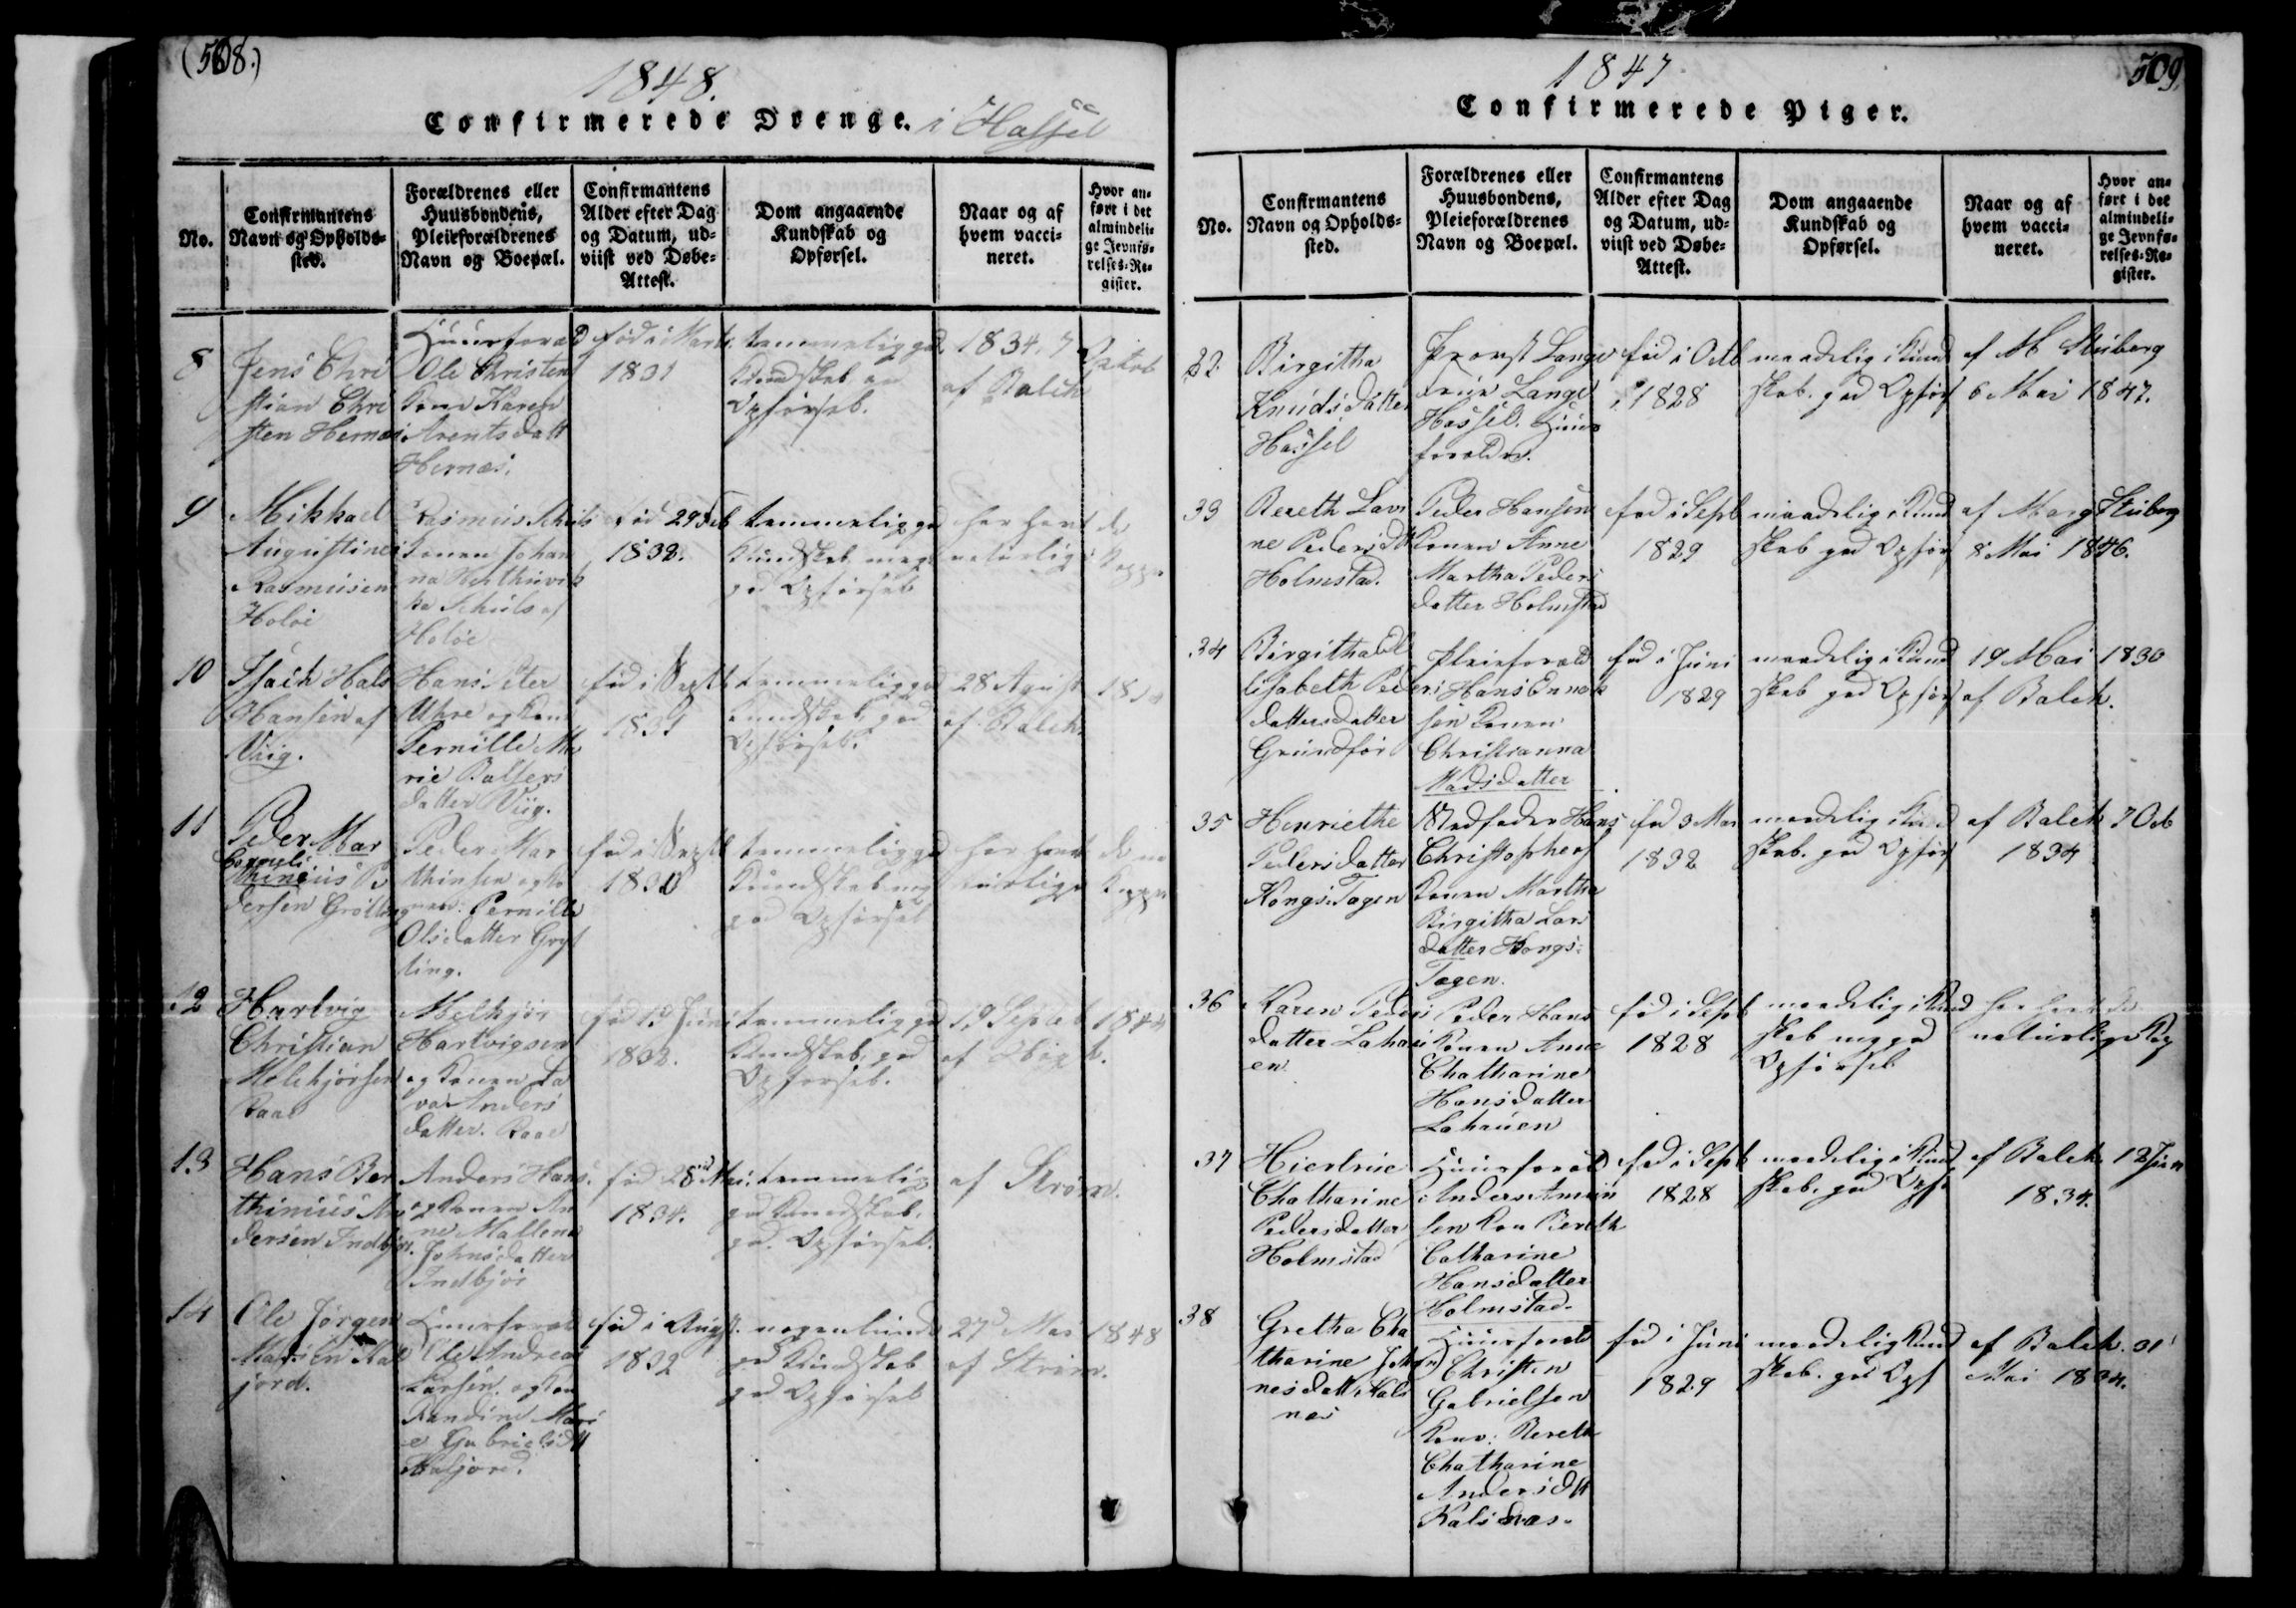 (508.)
1848.
Confirmerede Drenge. i Hassel
No.
Confirmantens
Navn og Opholds-
sted.
Forældrenes eller
Huusbondens,
Pleieforældrenes
Navn og Boepæl.
Confirmantens
Alder efter Dag
og Datum, ud-
viist ved Døbe-
Attest.
Dom angaaende
Kundskab og
Opførsel.
Naar og af
hvem vacci-
neret.
Hvor an-
ført i det
almindeli-
ge Jevnfø-
relses-Re-
gister.
8
Jens Chri
stian Chri
sten Hernæs
Huusforæld
Ole Christens
Kone Karen
Arentsdatt
Hernæs.
fød i Marts
1831
temmelig god
Kundskab og
Opførsel.
1834. 7 Octob
af Balck
9
Mikkael
Augustines
Rasmusen
Holøe
Rasmus Schuls
Konen Johan
na
ka Schuls af
Holøe
fød 29 Feb
1832.
temmelig god
Kundskab meg
god Opførsel
har havt de
naturlige Kopper
10
Isach Hals
Hansen af
Viig.
Hans Peter
Uhre og Kone
Pernille Ma
rie Balsers
datter Viig.
fød i Septb
1831
temmelig god
Kundskab god
Opførsel.
28 Agust
af Balck.
11
Peder Mar
Corneli
thinius Pe
dersen Grøtting
Peder Mar
thinsen og Ko
nen Pernille
Olsdatter Grøt
ting.
fød i Septb
1830
temmelig god
Kundskab meg
god Opførsel
har havt de na
turlige Kopper
12
Hartvig
Christian
Melchjorsen
Raae
Melkjør
Hartvigsen
og Konen La
va Anders
datter. Raae
fød 19 Juni
1832.
temmelig god
Kundskab, god
Opførsel.
19 Septeb 1844
af
13
Hans Ber
thinius An
dersen Indbjør.
Anders Hans.
og Konen An
ne Mallena
Johnsdatter
Indbjør
fød 28 Mai
1834.
temmelig
god Kundskab.
god Opførsel.
af Strøm.
14
Ole Jørgen
Kal
jord.
Huusforæld
Ole Andreas
Larsen. og Kon
Randine Mari
e Gabrielsdtt
Kaljord.
fød i August.
1832
nogenlunde
god Kundskab
god Opførsel
27 Mai 1848
af Strøm.
509.
1847
Confirmerede Piger.
No.
Confirmantens
Navn og Opholds-
sted.
Forældrenes eller
Huusbondens,
Pleieforældrenes
Navn og Boepæl.
Confirmantens
Alder efter Dag
og Datum, ud-
viist ved Døbe-
Attest.
Dom angaaende
Kundskab og
Opførsel.
Naar og af
hvem vacci-
neret.
Hvor an-
ført i det
almindeli-
ge Jevnfø-
relses-Re-
gister.
Birgitha
Knudsdatter
Hassel
Provst Lange
Frue Lange
Hassel. Huus
forældre.
fød i Octb
1828
maadelig i Kund
skab. god Opførs
af M Steiberg
6 Mai 1847.
33
Bereth Lavi
ne Pedersdtt
Holmstad.
Peder Hansen
Konen Anne
Martha Peders
datter Holmstad
fød i Septb
1829
maadelig i Kund
skab god Opførs
af Marg Steiberg
8 Mai 1846.
34
Birgitha El
lisabeth Peders
dattersdatter
Grundfør
Pleieforæld
Hans Ennok
sen Konen
Christianna
Madsdatter
fød i Juni
1829
maadelig i Kund
skab god Opførs
19 Mai 1830
af Balck.
35
Henriethe
Pedersdatter
Kongs Tagen
Stedfader Hans
Christophers
Konen Martha
Birgitha Lars
datter Kongs-
Tagen.
fød 3 Mar
1832
maadelig i Kund
skab. god Opførs
af Balck 7 Octb
1834
36
Karen Peders
datter Lahau
en
Peder Hans
Konen Anne
Chatharine
Hansdatter
Lahauen
fød i Septb
1828
maadelig i Kund
skab meg god
Opførsel
har havt de
naturlige Kop
37
Hiertrue
Chatharine
Pedersdatter
Holmstad
Huusforæld
Anders Amun
sen Kon Bereth
Catharine
Hansdatter
Holmstad.
fød i Septb
1828
maadelig i Kund
skab. god Opfø
af Balck. 12 Jun
1834.
38
Gretha Cha
tharine Joha
nesdatt. Kals
næs
Huusforæld
Christen
Gabrielsen
Kone. Bereth
Chatharine
Andersdtt
Kalsnæs.
fød i Juni
1829
maadelig Kund
skab. god Opf
af Balck. 31
Mai 1834.